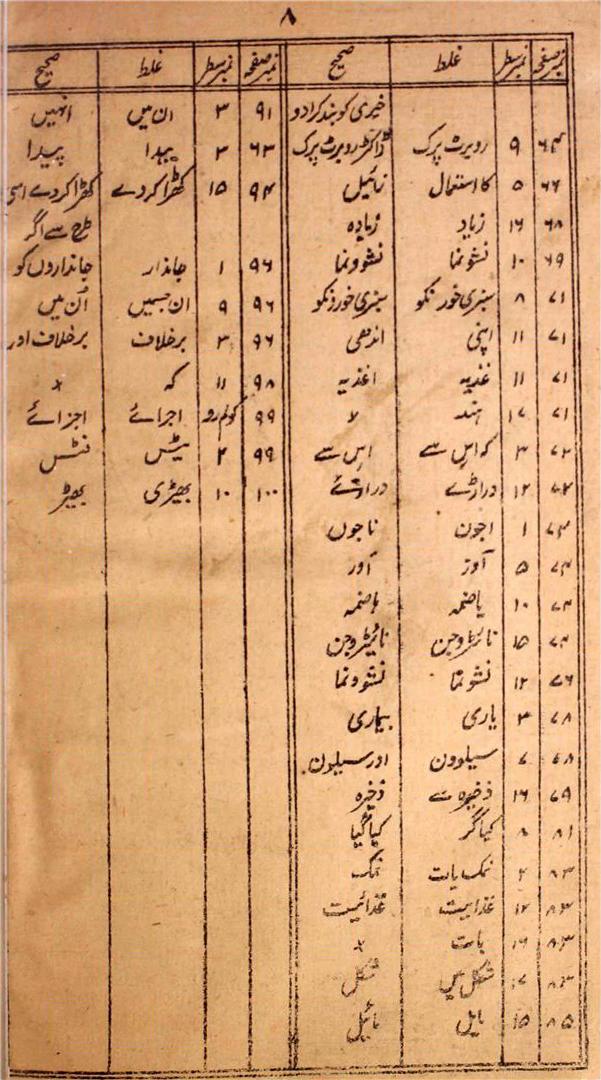 ۸
نمبر صفحہ نمبر سطر غلط صحیح
خیری کو بند کرا دو
۶۴ ۹ روبرٹ پرک ڈاکٹر روبرٹ پرک
۶۶ ۵ کا استعمال
۶۸ ۱۶ زیاد زیادہ
۶۹ ۱۰ نشونما نشوونما
۷۱ ۸ سبزی خور نکو سبزی خورونکو
۷۱ ۱۱ اپنی
۷۱ ۱۱ غذیہ اغذیہ
۷۱ ۱۷ ہند لا
۷۲ ۳ کہ اس سے اس سے
۷۲ ۱۲ دراڑے
۷۳ ۱ اجون ناجوں
۷۳ ۵ آوز اور
۷۳ ۱۰ یاضمہ ہاضمہ
۷۴ ۱۵ نائٹروجن نائیٹروجن
۷۶ ۱۲ نشونما نشوونما
۷۸ ۳ یاری بیماری
۷۸ ۷ سیلوون اور سیلون
۷۹ ۱۶ ذخیرہ سے ذخیرہ
۸۱ ۸ کیاگر کیا گیا
۸۳ ۲ نمک یات نمک
۸۳ ۱۲ غذابیت غذائیت
۸۳ ۱۶ بات ×
۸۳ ۱۷ شکل میں شکل
۸۵ ۱۵ بایل بائیل
نمبر صفحہ نمبر سطر غلط صحیح
۹۱ ۳ ان میں انہیں
۶۳ ۳ پیدا پیدا
۹۴ ۱۵ کھڑا کر دے کھڑا کر دے اسی
طرح سے اگر
۹۶ ۱ جاندار جانداروں کو
۹۶ ۹ ان جسیں اُن میں
۹۶ ۳ برخلاف برخلاف اور
۹۸ ۱۱ کہ ×
۹۹ اجرائے اجزائے
۹۹ ۲ یٹس نٹس
۱۰۰ ۱۰ بھیڑی بھیڑ